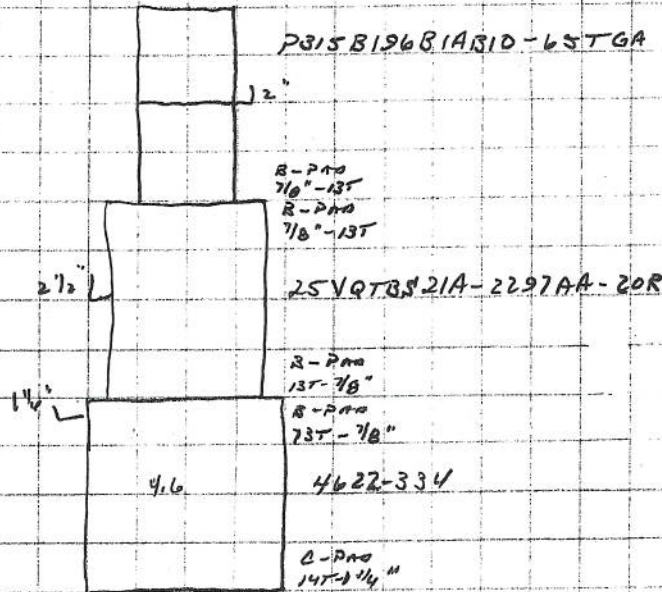 P315B196B1AB10-65TGA
2"
B-PAD
7/8"-13T
B-PAD
7/8"-13T
2 1/2"
25VQTBS21A-2297AA-20R
B-PAD
13T-7/8"
1 1/4"
B-PAD
13T-7/8"
4.6
4622-334
C-PAD
14T-1 1/4"